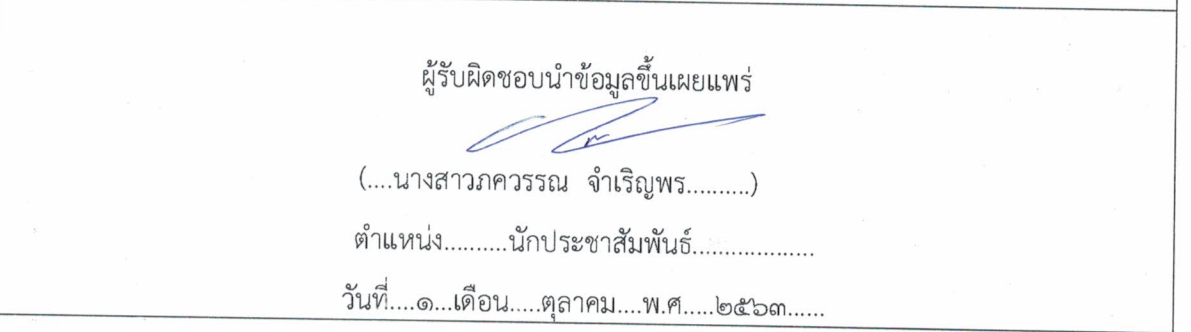 ผู้รับผิดชอบนำข้อมูลขึ้นเผยแพร่
(....นางสาวภควรรณ จำเริญพร..........)
ตำแหน่ง..........นักประชาสัมพันธ์...................
วันที่....๑...เดือน.....ตุลาคม....พ.ศ.....๒๕๖๓......